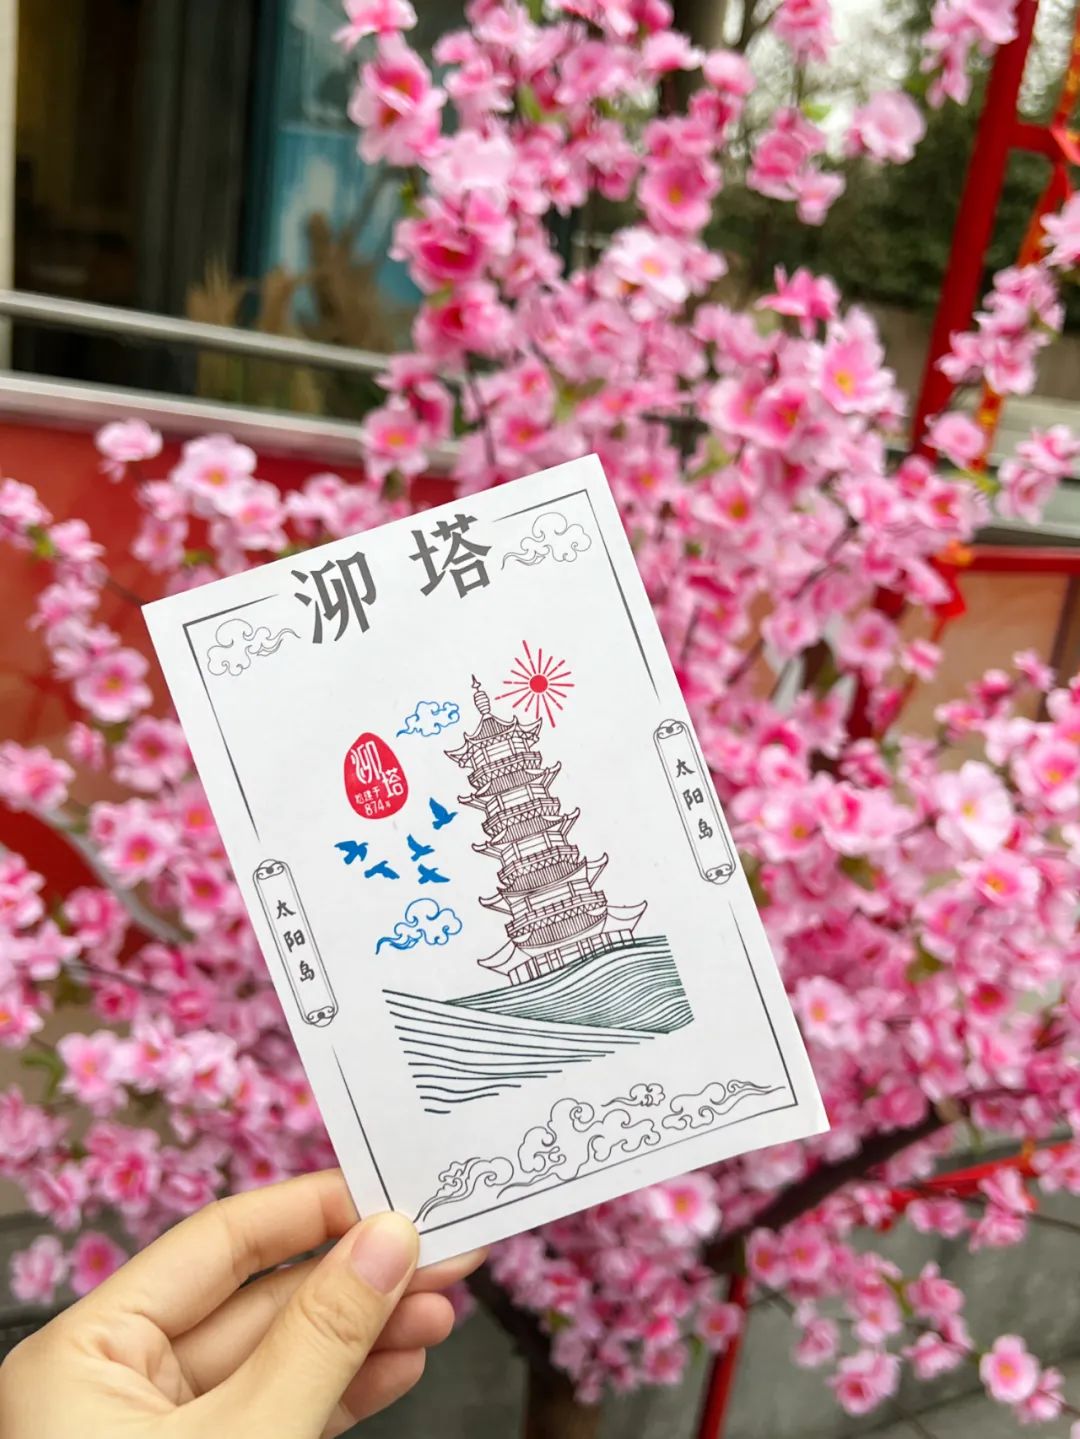 泖塔
泖塔
始建于
874年
太阳岛
太阳岛